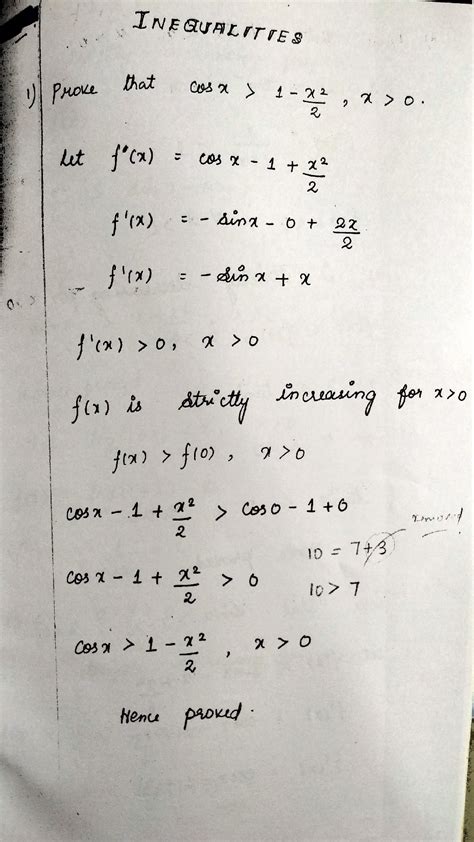 INEQUALITIES
1) Prove that cos x > 1 - x²/2 , x > 0.
Let f(x) = cos x - 1 + x²/2
f'(x) = - sin x - 0 + 2x/2
f'(x) = - sin x + x
f'(x) > 0, x > 0
f(x) is strictly increasing for x>0
f(x) > f(0) , x>0
cos x - 1 + x²/2 > cos 0 - 1 + 0
10 = 7+3
cos x - 1 + x²/2 > 0
10 > 7
cos x > 1 - x²/2 , x > 0
Hence proved.